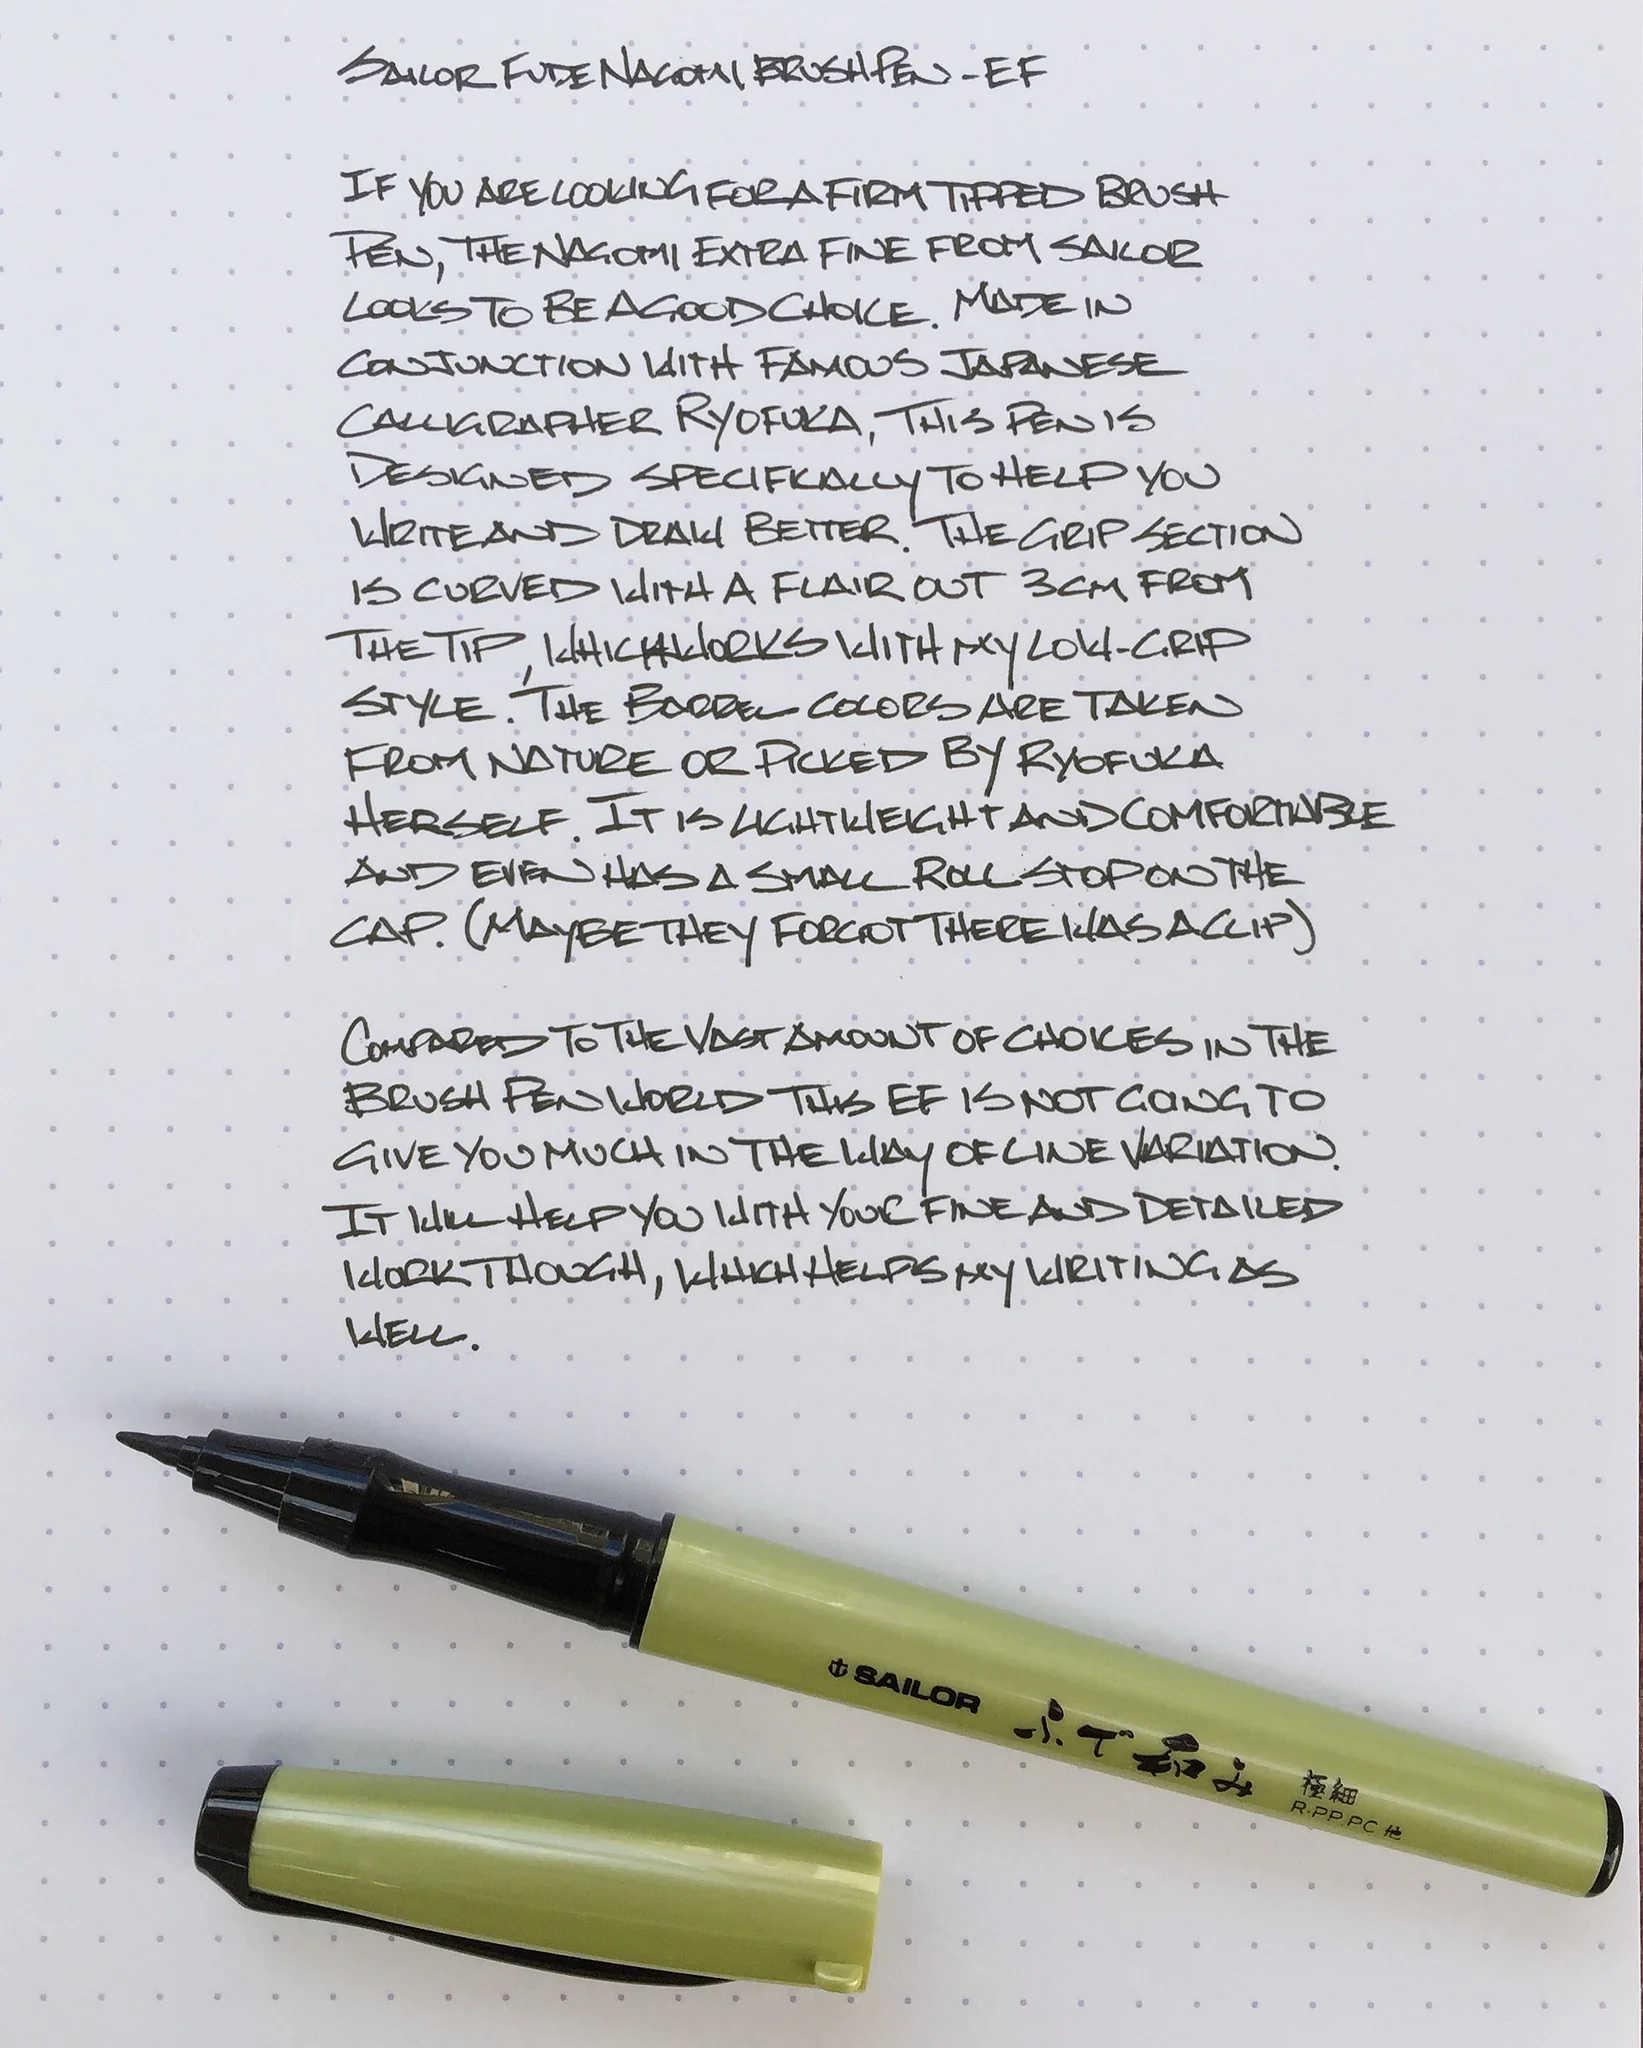 SAILOR FUDE NAGOMI BRUSH PEN - EF
IF YOU ARE LOOKING FOR A FIRM TIPPED BRUSH
PEN, THE NAGOMI EXTRA FINE FROM SAILOR
LOOKS TO BE A GOOD CHOICE. MADE IN
CONJUNCTION WITH FAMOUS JAPANESE
CALLIGRAPHER RYOFUKA, THIS PEN IS
DESIGNED SPECIFICALLY TO HELP YOU
WRITE AND DRAW BETTER. THE GRIP SECTION
IS CURVED WITH A FLAIR OUT 3CM FROM
THE TIP, WHICH WORKS WITH MY LOW-GRIP
STYLE. THE BARREL COLORS ARE TAKEN
FROM NATURE OR PICKED BY RYOFUKA
HERSELF. IT IS LIGHTWEIGHT AND COMFORTABLE
AND EVEN HAS A SMALL ROLL STOP ON THE
CAP. (MAYBE THEY FORGOT THERE WAS A CLIP)
COMPARED TO THE VAST AMOUNT OF CHOICES IN THE
BRUSH PEN WORLD THIS EF IS NOT GOING TO
GIVE YOU MUCH IN THE WAY OF LINE VARIATION.
IT WILL HELP YOU WITH YOUR FINE AND DETAILED
WORK THOUGH, WHICH HELPS MY WRITING AS
WELL.
SAILOR ふで和み 極細
R・PP,PC 他